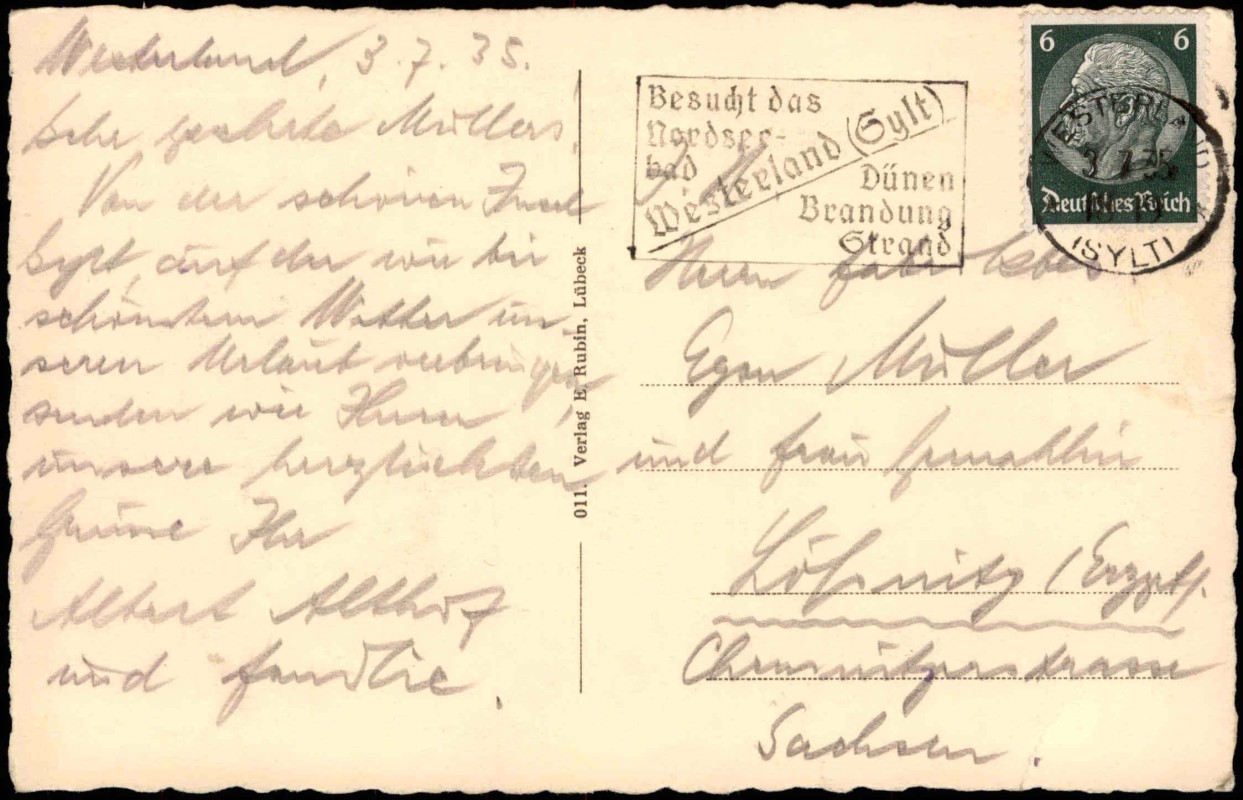 Westerland, 3.7.35.
Sehr geehrte Müllers,
Von der schönen Insel
Sylt, auf der wir bei
schönstem Wetter un-
seren Urlaub verbringen,
senden wir Ihnen
unsere herzlichsten
Grüsse Ihr
Albert Althof
und Familie.
011. Verlag E. Rubin, Lübeck
Besucht das
Nordsee-
bad
Westerland (Sylt)
Dünen
Brandung
Strand
6 6
Deutsches Reich
WESTERLAND
3.7.35
(SYLT)
Herrn
Egon Müller
und Frau Gemahlin
Lößnitz (Erzgeb).
Chemnitzerstrasse
Sachsen.